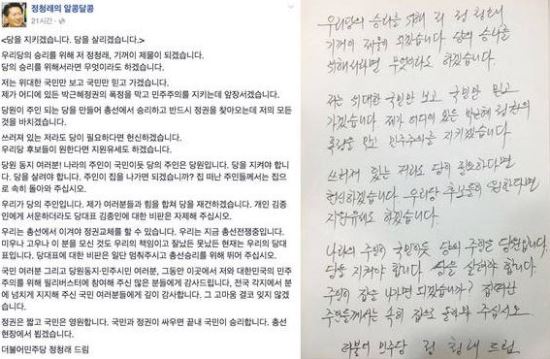 정청래의 알콩달콩
21시간 ·
<당을 지키겠습니다. 당을 살리겠습니다.>
우리당의 승리를 위해 저 정청래, 기꺼이 제물이 되겠습니다.
당의 승리를 위해서라면 무엇이라도 하겠습니다.
저는 위대한 국민만 보고 국민만 믿고 가겠습니다.
제가 어디에 있든 박근혜정권의 폭정을 막고 민주주의를 지키는데 앞장서겠습니다.
당원이 주인 되는 당을 만들어 총선에서 승리하고 반드시 정권을 찾아오는데 저의 모든
것을 바치겠습니다.
쓰러져 있는 저라도 당이 필요하다면 헌신하겠습니다.
우리당 후보들이 원한다면 지원유세도 하겠습니다.
당원 동지 여러분! 나라의 주인이 국민이듯 당의 주인은 당원입니다. 당을 지켜야 합니
다. 당을 살려야 합니다. 주인이 집을 나가면 되겠습니까? 집 떠난 주인들께서는 집으
로 속히 돌아와 주십시오.
우리가 당의 주인입니다. 제가 여러분들과 힘을 합쳐 당을 재건하겠습니다. 개인 김종
인에게 서운하더라도 당대표 김종인에 대한 비판은 자제해 주십시오.
우리는 총선에서 이겨야 정권교체를 할 수 있습니다. 우리는 지금 총선전쟁중입니다.
미우나 고우나 이 분을 모신 것도 우리의 책임이고 잘났든 못났든 현재는 우리의 당대
표입니다. 당대표에 대한 비판은 일단 멈춰주시고 총선승리를 위해 뛰어 주십시오.
국민 여러분 그리고 당원동지·민주시민 여러분, 그동안 이곳에서 저와 대한민국의 민주
주의를 위해 필리버스터에 참여해 주신 많은 분들에게 감사드립니다. 전국 각지에서 분
에 넘치게 지지해 주신 국민 여러분들에게 깊이 감사합니다. 그 고마움 결코 잊지 않겠
습니다.
정권은 짧고 국민은 영원합니다. 국민과 정권이 싸우면 끝내 국민이 승리합니다. 총선
현장에서 뵙겠습니다.
더불어민주당 정청래 드림
우리당의 승리를 위해 저 정청래
기꺼이 제물이 되겠습니다. 당의 승리를
위해서라면 무엇이라도 하겠습니다.
저는 위대한 국민만 보고 국민만 믿고
가겠습니다. 제가 어디에 있든 박근혜 정권의
폭정을 막고 민주주의를 지키겠습니다.
쓰러져 있는 저라도 당이 필요하다면
헌신하겠습니다. 우리당 후보들이 원한다면
지원유세도 하겠습니다.
나라의 주인이 국민이듯 당의 주인은 당원입니다.
당을 지켜야 합니다. 당을 살려야 합니다.
주인이 집을 나가면 되겠습니까? 집떠난
주인들께서는 속히 집으로 돌아와 주십시오.
더불어 민주당 정청래 드림